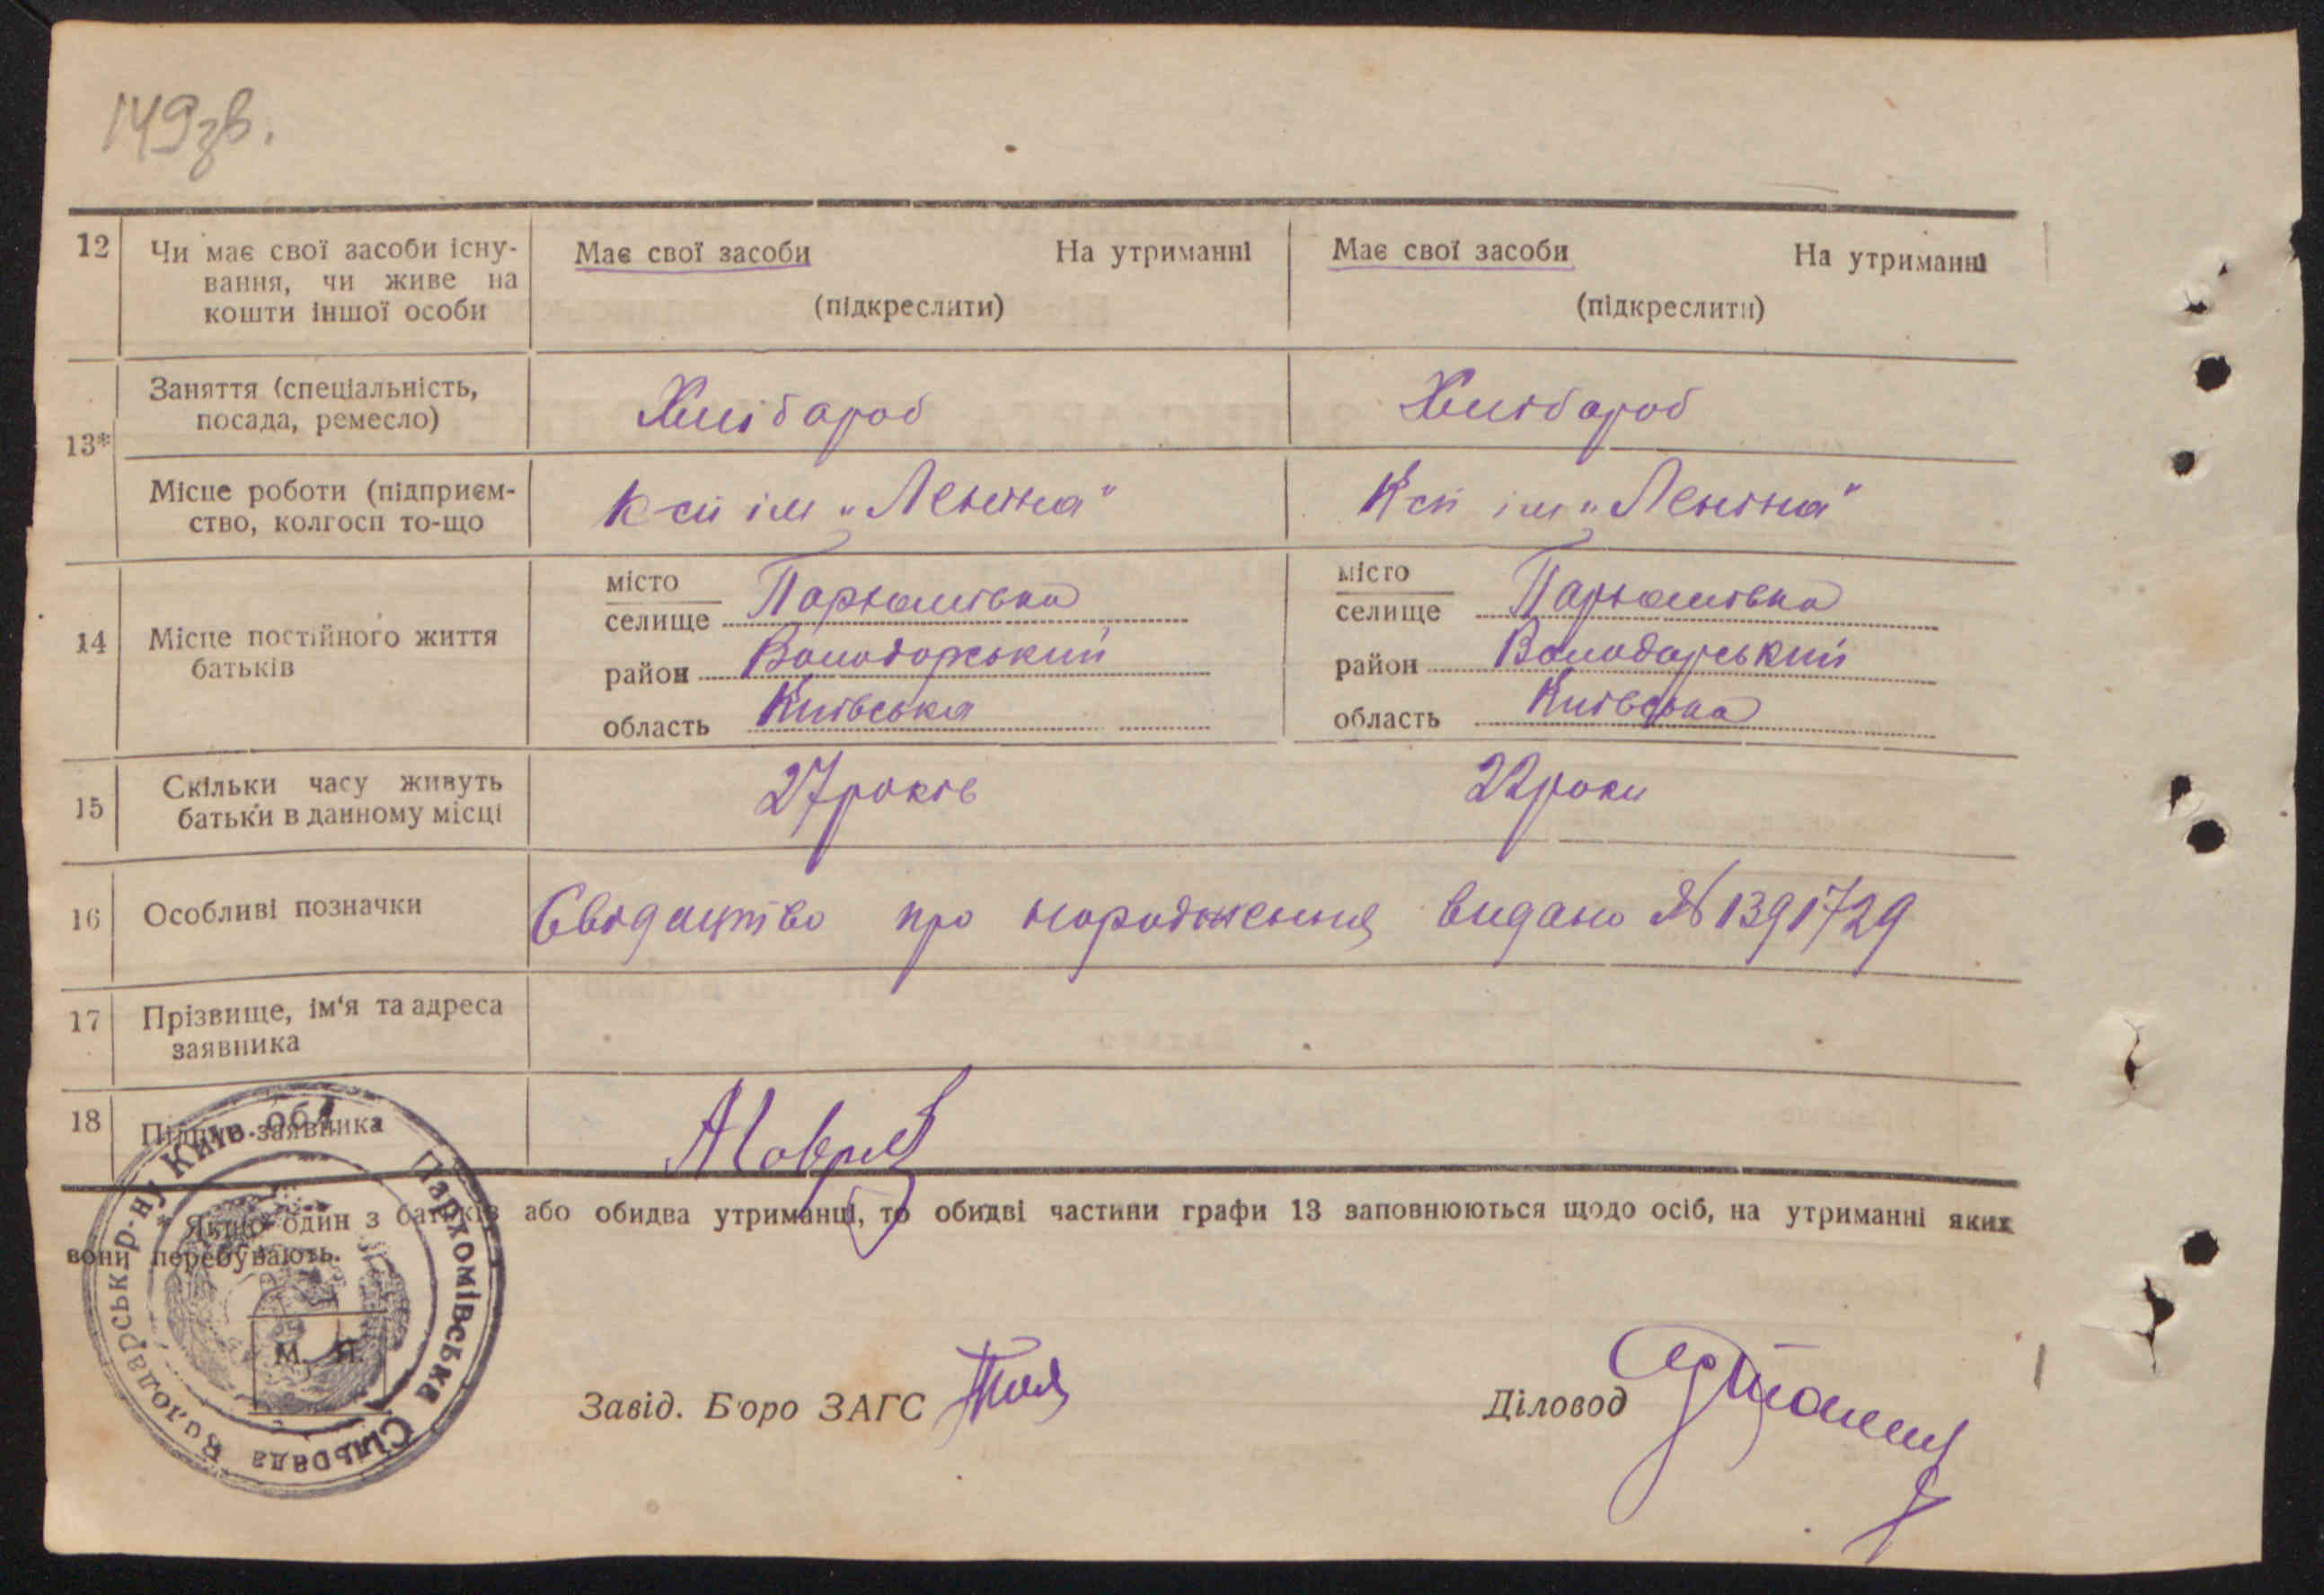 149зв.
12 Чи має свої засоби існу- Має свої засоби На утриманні Має свої засоби На утриманні
вання, чи живе на
кошти іншої особи (підкреслити) (підкреслити)
Заняття (спеціальність, Хлібороб Хлібороб
посада, ремесло)
13*
Місце роботи (підприєм- К-сп ім „Леніна" К-сп ім „Леніна"
ство, колгосп то-що
14 Місце постійного життя місто Пархомівка місто Пархомівка
батьків селище селище
район Володарський район Володарський
область Київська область Київська
15 Скільки часу живуть 27 років 22 роки
батьки в данному місці
16 Особливі позначки Свідоцтво про народження видано № 1391729
17 Прізвище, ім'я та адреса
заявника
18 Підпис заявника
* Якщо один з батьків або обидва утриманці, то обидві частини графи 13 заповнюються щодо осіб, на утриманні яких
вони перебувають.
Пархомівська Сільрада Володарськ. р-ну Київ. обл.
М. П.
Завід. Бюро ЗАГС Діловод